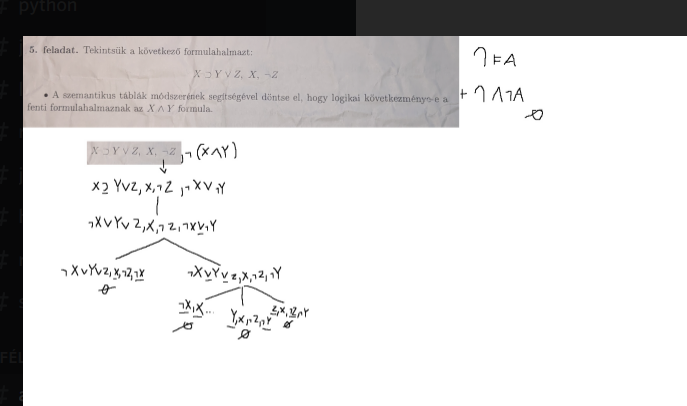 python
5. feladat. Tekintsük a következő formulahalmazt:
X ⊃ Y ∨ Z, X, ¬Z
• A szemantikus táblák módszerének segítségével döntse el, hogy logikai következménye-e a
fenti formulahalmaznak az X ∧ Y formula.
⊨A
∧¬A
X ⊃ Y ∨ Z, X, ¬Z, ¬(X∧Y)
X⊃Y∨Z, X, ¬Z, ¬X∨¬Y
¬X∨Y∨Z, X, ¬Z, ¬X∨¬Y
¬X∨Y∨Z, X, ¬Z, ¬X
¬X∨Y∨Z, X, ¬Z, ¬Y
¬X, X...
Y, X, ¬Z, ¬Y
Z, X, ¬Z, ¬Y
FÉL